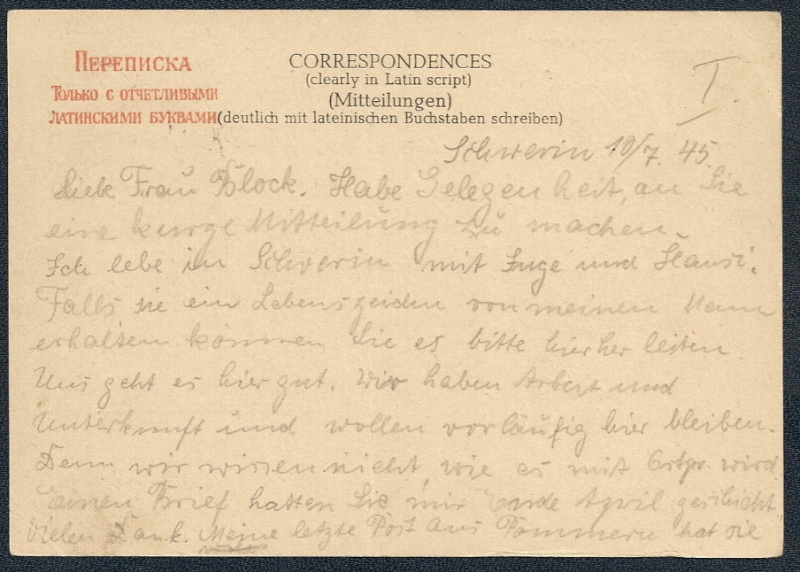 ПЕРЕПИСКА
ТОЛЬКО С ОТЧЕТЛИВЫМИ
ЛАТИНСКИМИ БУКВАМИ
CORRESPONDENCES
(clearly in Latin script)
(Mitteilungen)
(deutlich mit lateinischen Buchstaben schreiben)
I.
Schwerin 10/7. 45.
Liebe Frau Block. Habe Gelegenheit, an Sie
eine kurze Mitteilung zu machen.
Ich lebe in Schwerin mit Inge und Hansi.
Falls sie ein Lebenszeichen von meinen Mann
erhalten können Sie es bitte hierher leiten.
Uns geht es hier gut. Wir haben Arbeit und
Unterkunft und wollen vorläufig hier bleiben.
Denn wir wissen nicht wie es mit Ostpr. wird
Einen Brief hatten Sie mir Ende April geschickt
Vielen Dank. Meine letzte Post aus Pommern hat sie